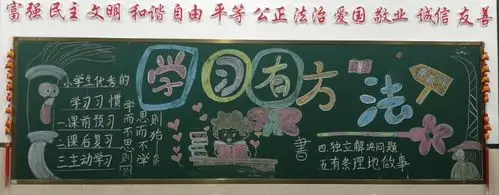 富强 民主 文明 和谐 自由 平等 公正 法治 爱国 敬业 诚信 友善
学习有方法
小学生优秀的
学习习惯
一.课前预习
二.课后复习
三.主动学习
学而不思则罔
思而不学
则殆
書
四.独立解决问题
五.有条理地做事